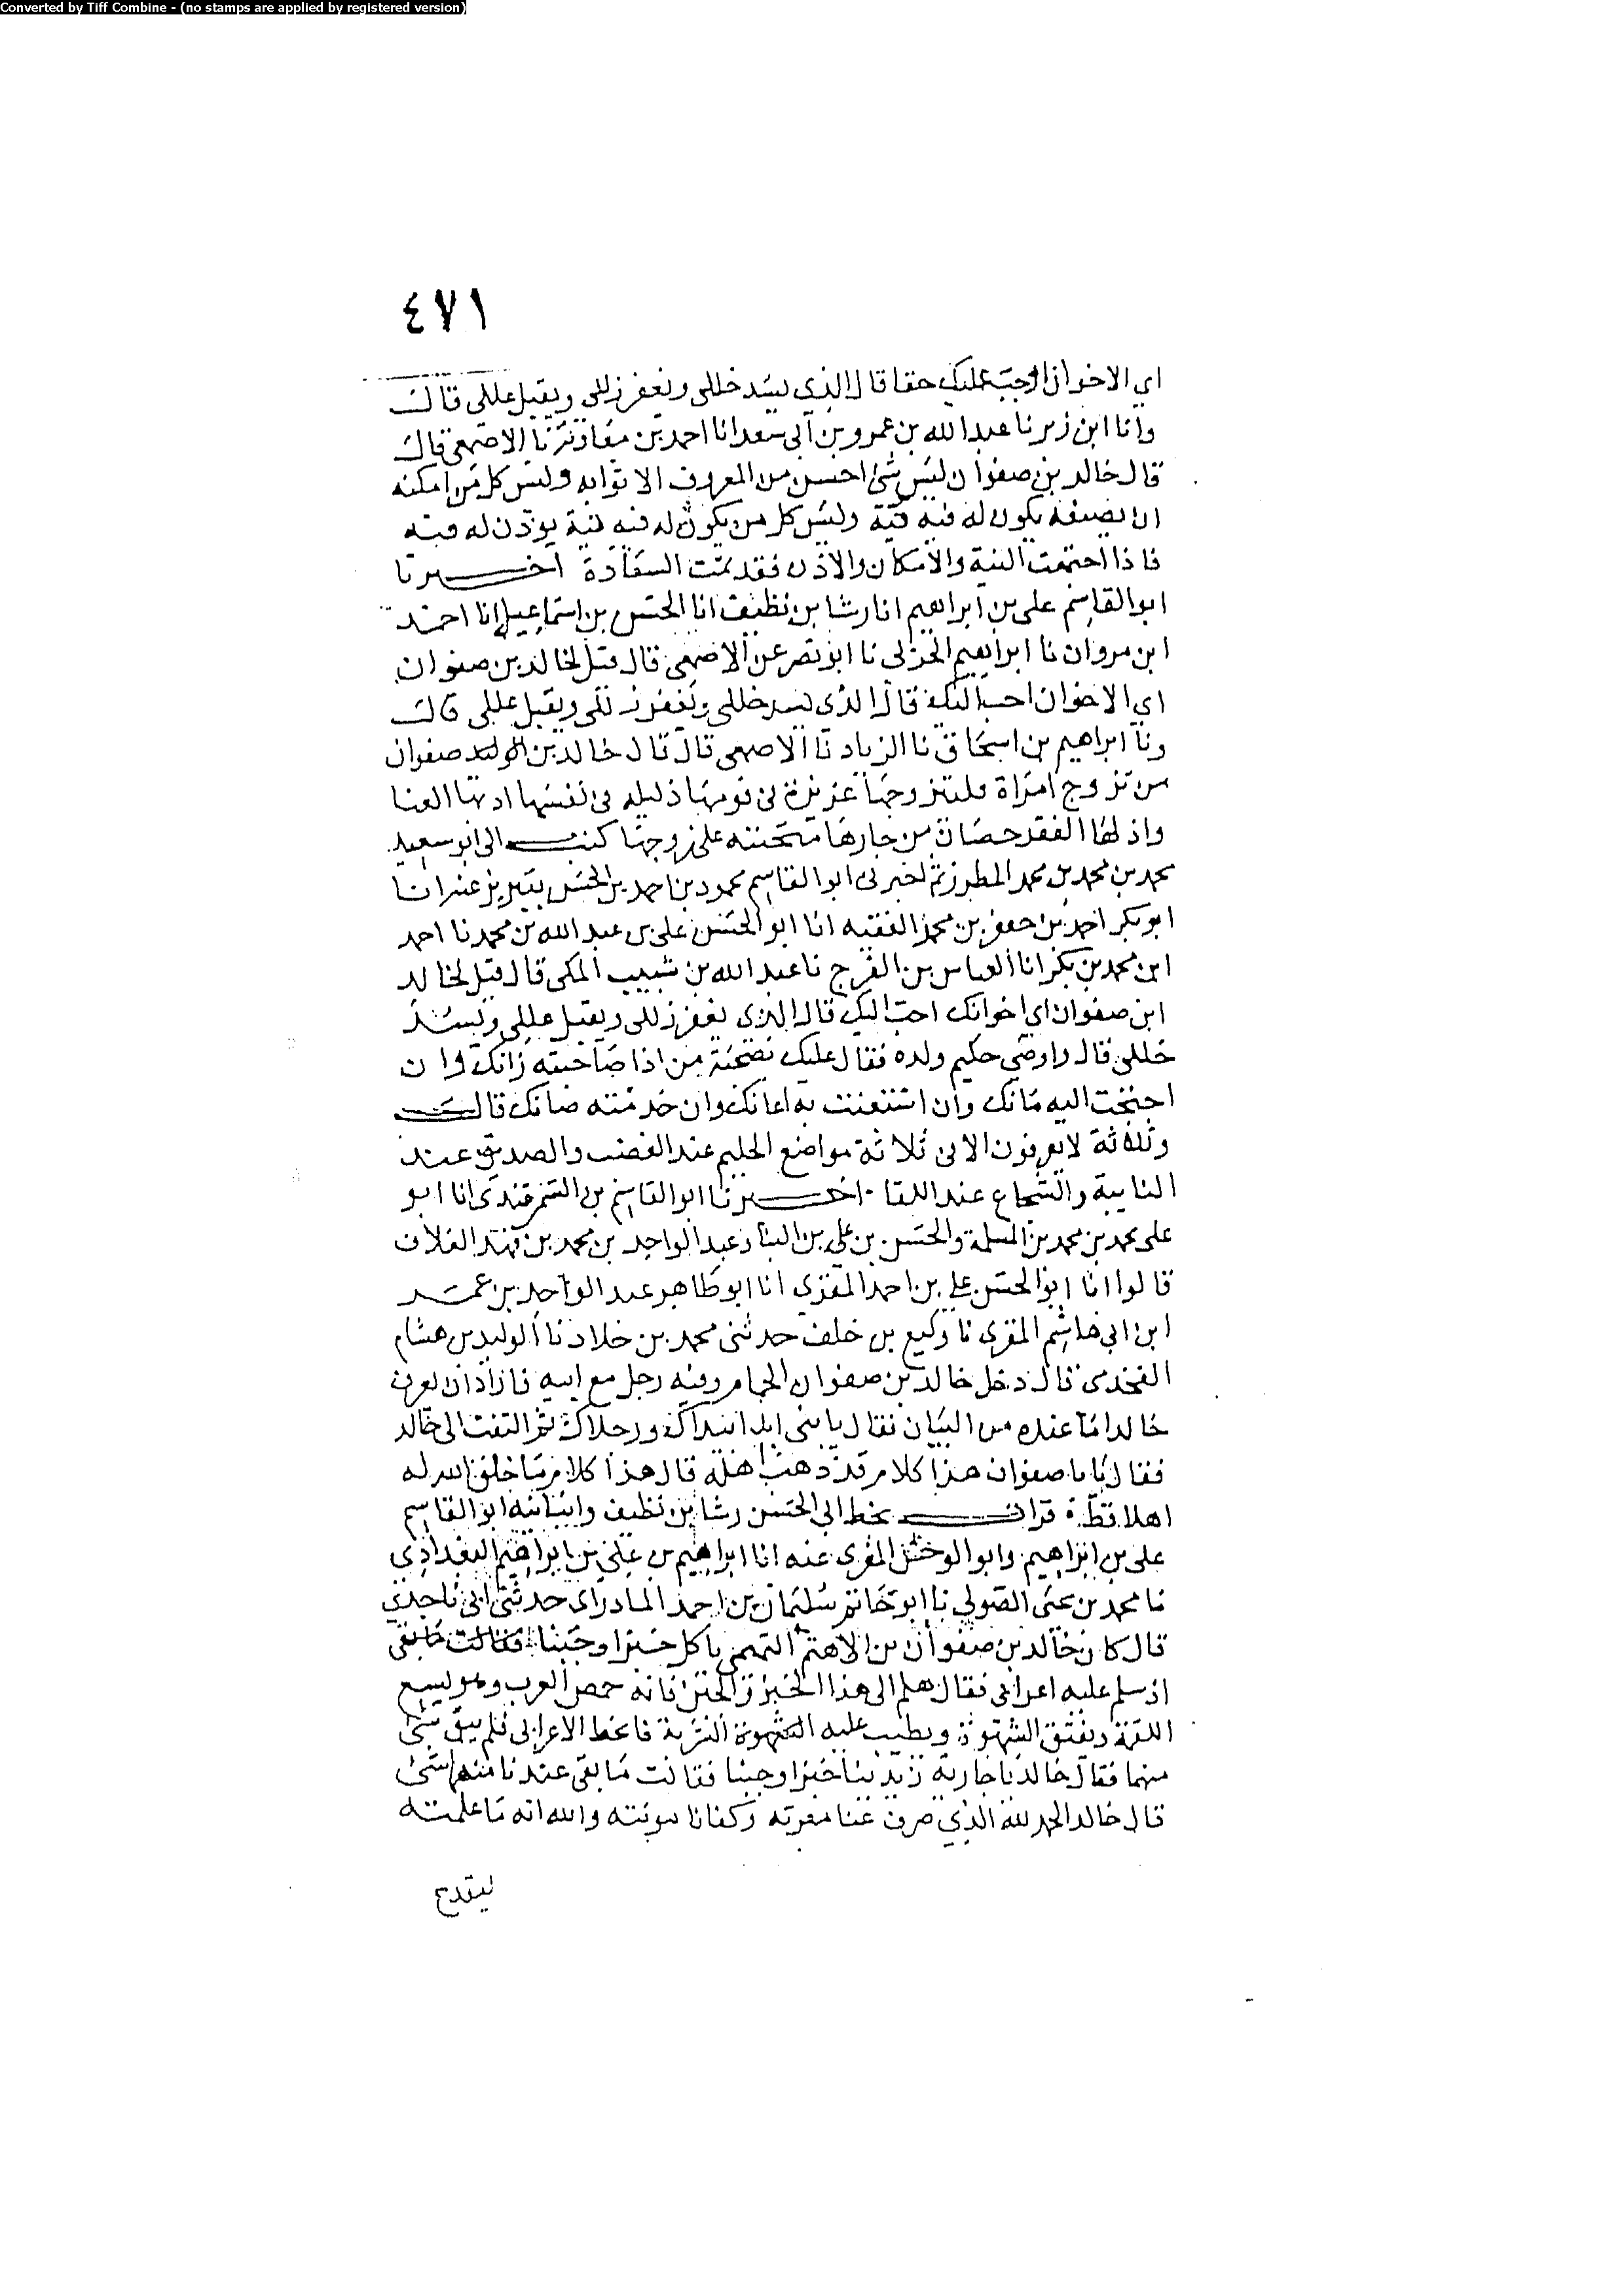 Converted by Tiff Combine - (no stamps are applied by registered version)
٤٧١
اي الاخوان اوجب عليك حقا قال الذي يسد خللي ويغفر زللي ويقبل عللي قال
وانا ابن زبر نا عبد الله بن عمرو بن ابي سعد انا احمد بن معاوية نا الاصمعي قال
قال خالد بن صفوان ليس شئ احسن من المعروف الا ثوابه وليس كل من امكنه
ان يصنعه يكون له فيه نية وليس كل من يكون له فيه نية يوذن له فيه
فاذا اجتمعت النية والامكان والاذن فقد تمت السعادة اخبرنا
ابو القاسم علي بن ابراهيم انا رشا بن نظيف انا الحسن بن اسماعيل انا احمد
ابن مروان نا ابراهيم الحربي نا ابو نصر عن الاصمعي قال قيل لخالد بن صفوان
اي الاخوان احب اليك قال الذي يسد خللي ويغفر زللي ويقبل عللي قال
ونا ابراهيم بن اسحاق نا الزيادي نا الاصمعي قال قال خالد بن الوليد صفوان
من تزوج امراة فليتزوجها عزيزة في قومها ذليلة في نفسها ادبها الغنا
واذلها الفقر حصان من جارها متحننه على زوجها كتب الي ابو سعيد
محمد بن محمد بن محمد المطرز ثم اخبرني ابو القاسم محمود بن احمد بن الحسن بتبريز عنه انا
ابو بكر احمد بن جعفر بن محمد الفقيه انا ابو الحسن علي بن عبد الله بن محمد نا احمد
ابن محمد بن بكر انا العباس بن الفرج نا عبد الله بن شبيب المكي قال قيل لخالد
ابن صفوان اي اخوانك احب اليك قال الذي يغفر زللي ويقبل عللي ويسد
خللي قال واوصى حكيم ولده فقال عليك بصحبة من اذا صاحبته زانك وان
احتجت اليه مانك وان استعنت به اعانك وان خدمته صانك قال
وثلاثة لا يعرفون الا في ثلاثة مواضع الحليم عند الغضب والصديق عند
النايبة والشجاع عند اللقا اخبرنا ابو القاسم بن السمرقندي انا ابو
علي محمد بن محمد بن المسلمة والحسن بن علي بن البنا وعبد الواحد بن محمد بن فهد العلاف
قالوا انا ابو الحسن علي بن احمد المقري انا ابو طاهر عبد الواحد بن عمر
ابن ابي هاشم المقري نا وكيع بن خلف حدثني محمد بن خلاد نا الوليد بن هشام
القحذمي قال دخل خالد بن صفوان الحمام وفيه رجل مع ابنه فاراد ان يعرف
خالدا ما عنده من البيان فقال يا بني ابدا بيداك ورجلاك ثم التفت الى خالد
فقال يا با صفوان هذا كلام قد ذهب اهله قال هذا كلام ما خلق الله له
اهلا قط قرات بخط ابي الحسن رشا بن نظيف وانبانيه ابو القاسم
علي بن ابراهيم وابو الوحش المقري عنه انا ابراهيم بن علي بن ابراهيم البغدادي
نا محمد بن يحيى الصولي نا ابو سليمان بن احمد المادراي حدثني ابي نا جدي
قال كان خالد بن صفوان بن الاهتم التميمي ياكل خبزا وجبنا فقالت ما بقي
اذ سلم عليه اعرابي فقال هلم الى هذا الخبز والجبن فانه حمض العرب وهو يسيغ
اللقمة ويفتق الشهوة ويطيب عليه الشربة فانحط الاعرابي فلم يبق شئ
منهما فقال خالد يا جارية زيدينا خبزا وجبنا فقالت ما بقي عندنا منه شئ
قال خالد الحمد لله الذي صرف عنا معرته وكفانا مونته والله انه ما علمته
ليقدح